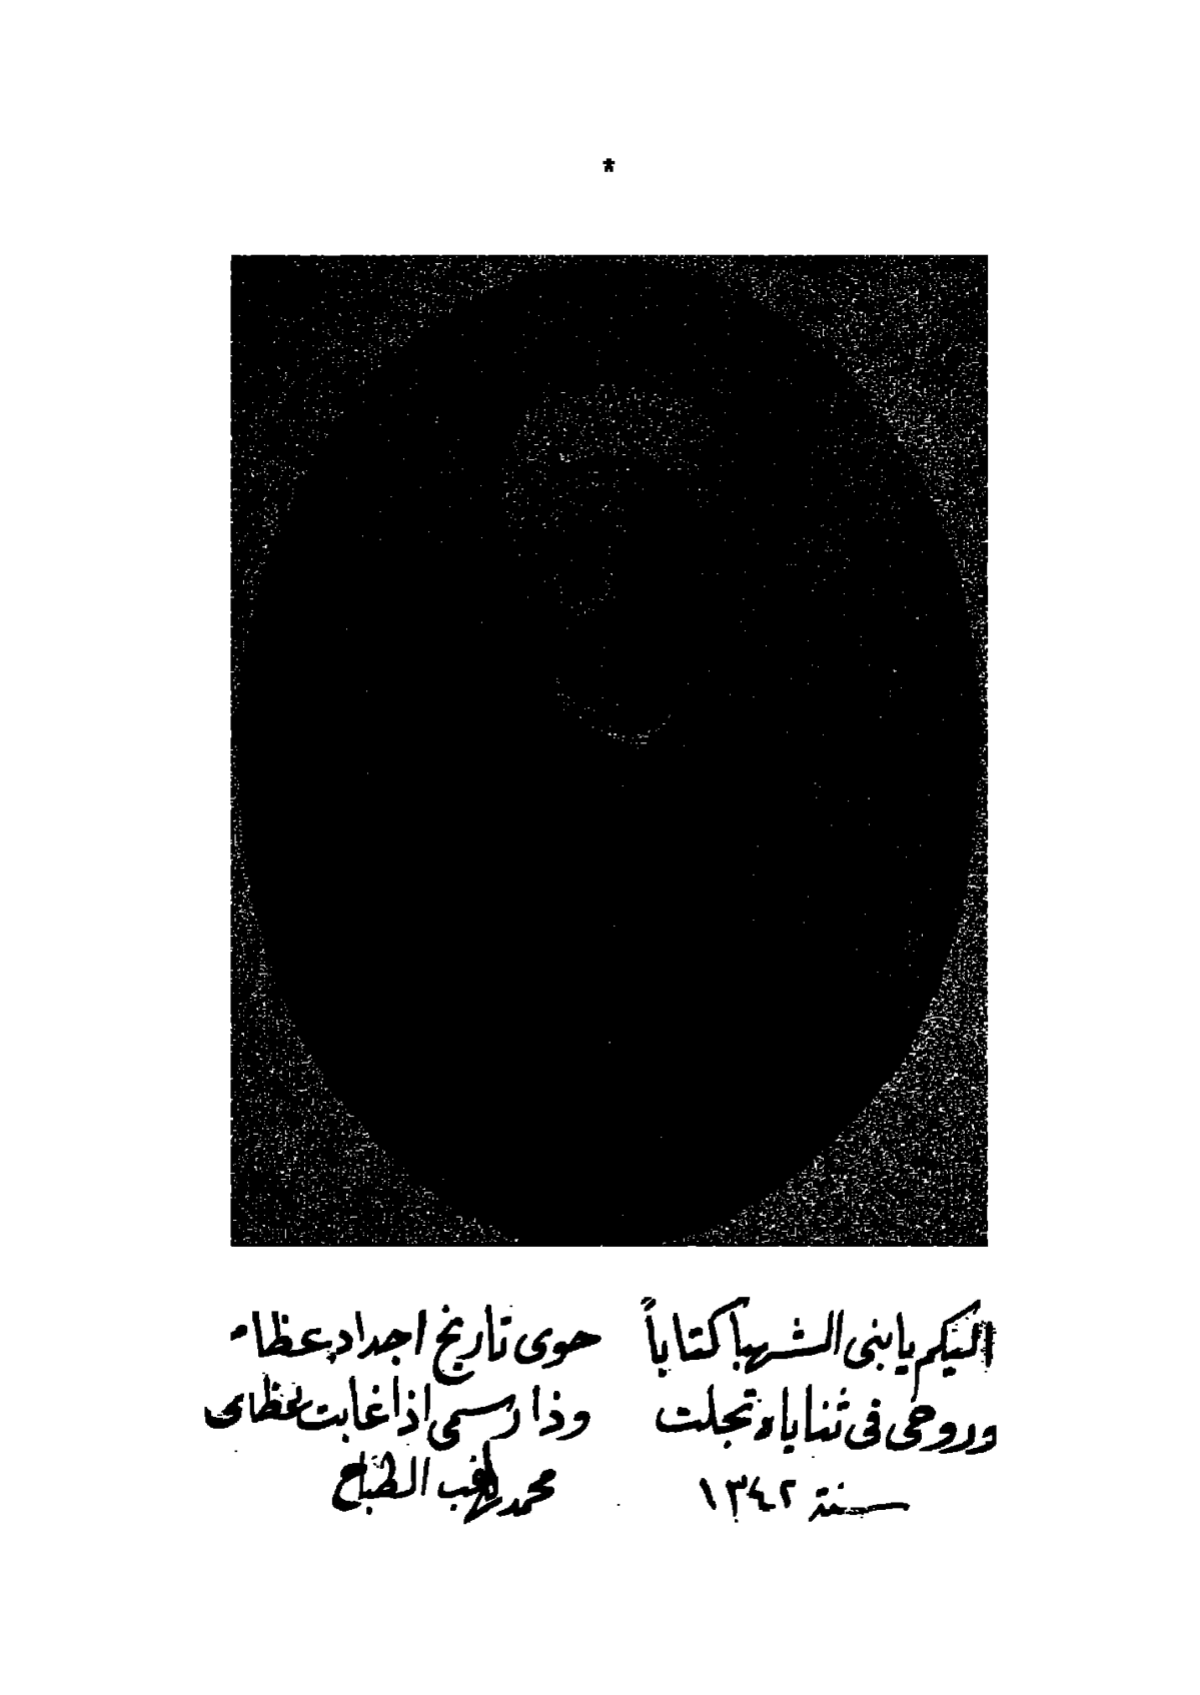 *
اليكم يا بنى الشهبا كتاباً حوى تاريخ اجداد عظام
وروحى فى ثناياه تجلت وذا رسمى اذا غابت عظامى
سنة ١٣٤٢ محمد راغب الطباخ